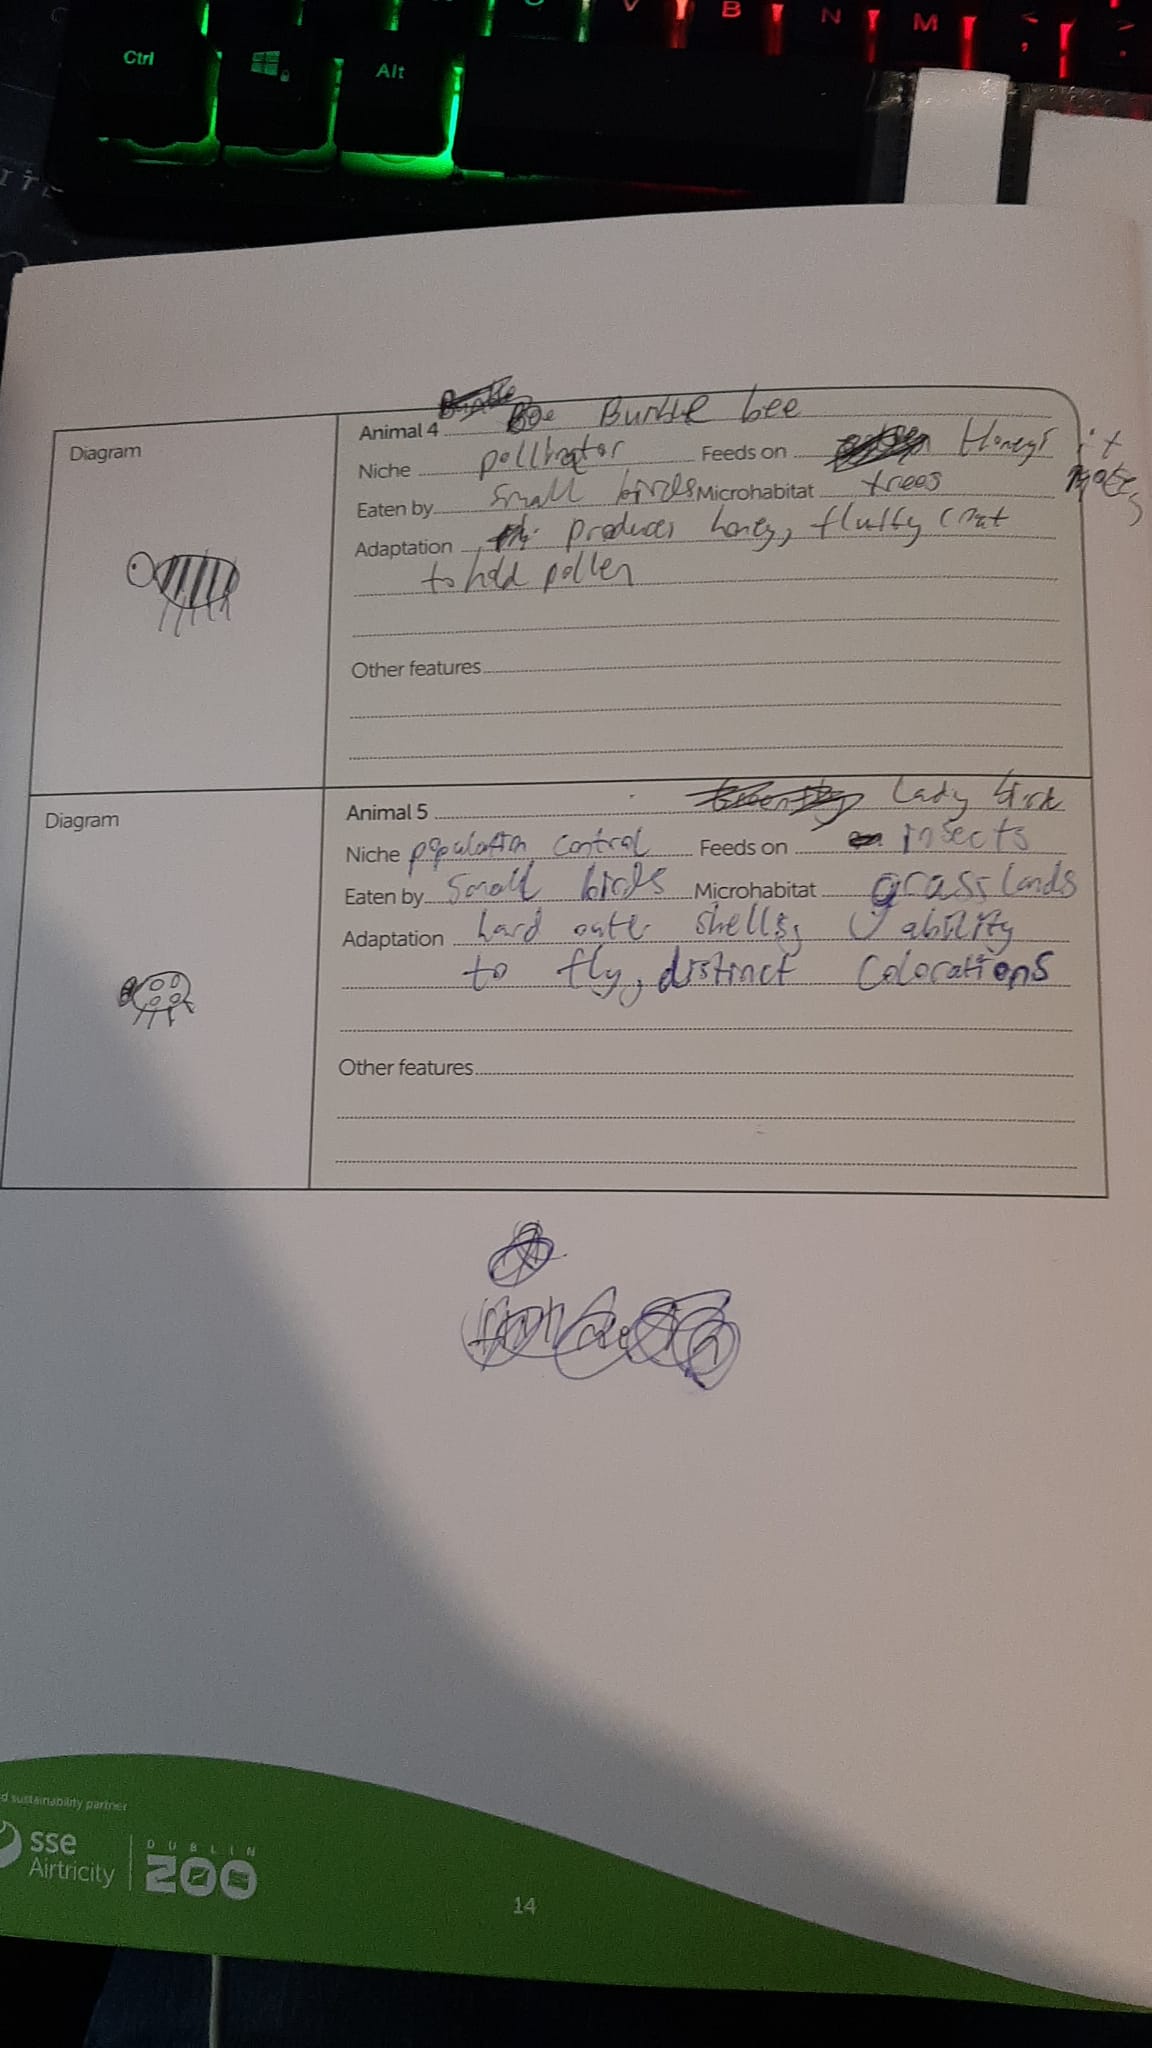 Ctrl Alt V B N M
Diagram
Animal 4 Bumble bee
Niche pollinator Feeds on Honey it makes
Eaten by small birds Microhabitat trees
Adaptation produces honey, fluffy coat
to hold pollen
Other features
Diagram
Animal 5 Lady bird
Niche population control Feeds on insects
Eaten by small birds Microhabitat grasslands
Adaptation hard outer shells, ability
to fly, distinct Colorations
Other features
d sustainability partner
sse
Airtricity
DUBLIN
ZOO
14